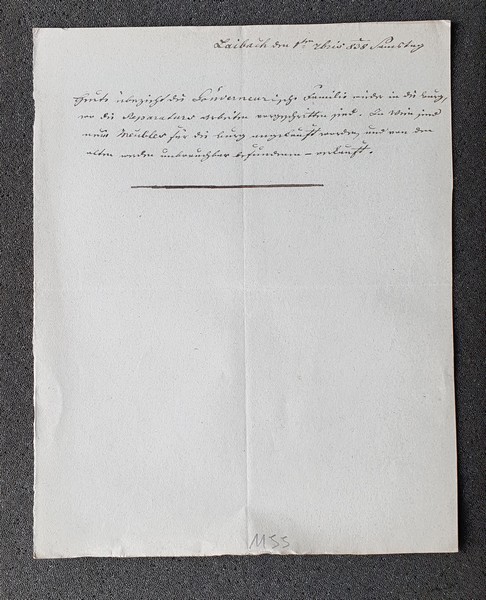 Laibach den 1ten 7bris 838 Samstag
Heute überzieht die Gouverneurische Familie wieder in die Burg,
wo die Reparaturs Arbeiten vorgeschritten sind. In Wien sind
neue Meubles für die Burg angekauft worden, und von den
alten werden unbrauchbar befundenen – verkauft.
MSS